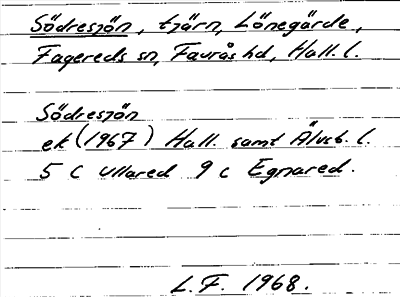 Södresjön, tjärn, Lönegärde,
Fagereds sn, Faurås hd, Hall. l.
Södresjön
ek (1967) Hall. samt Älvsb. l.
5 C Ullared 9 c Egnared.
L.F. 1968.